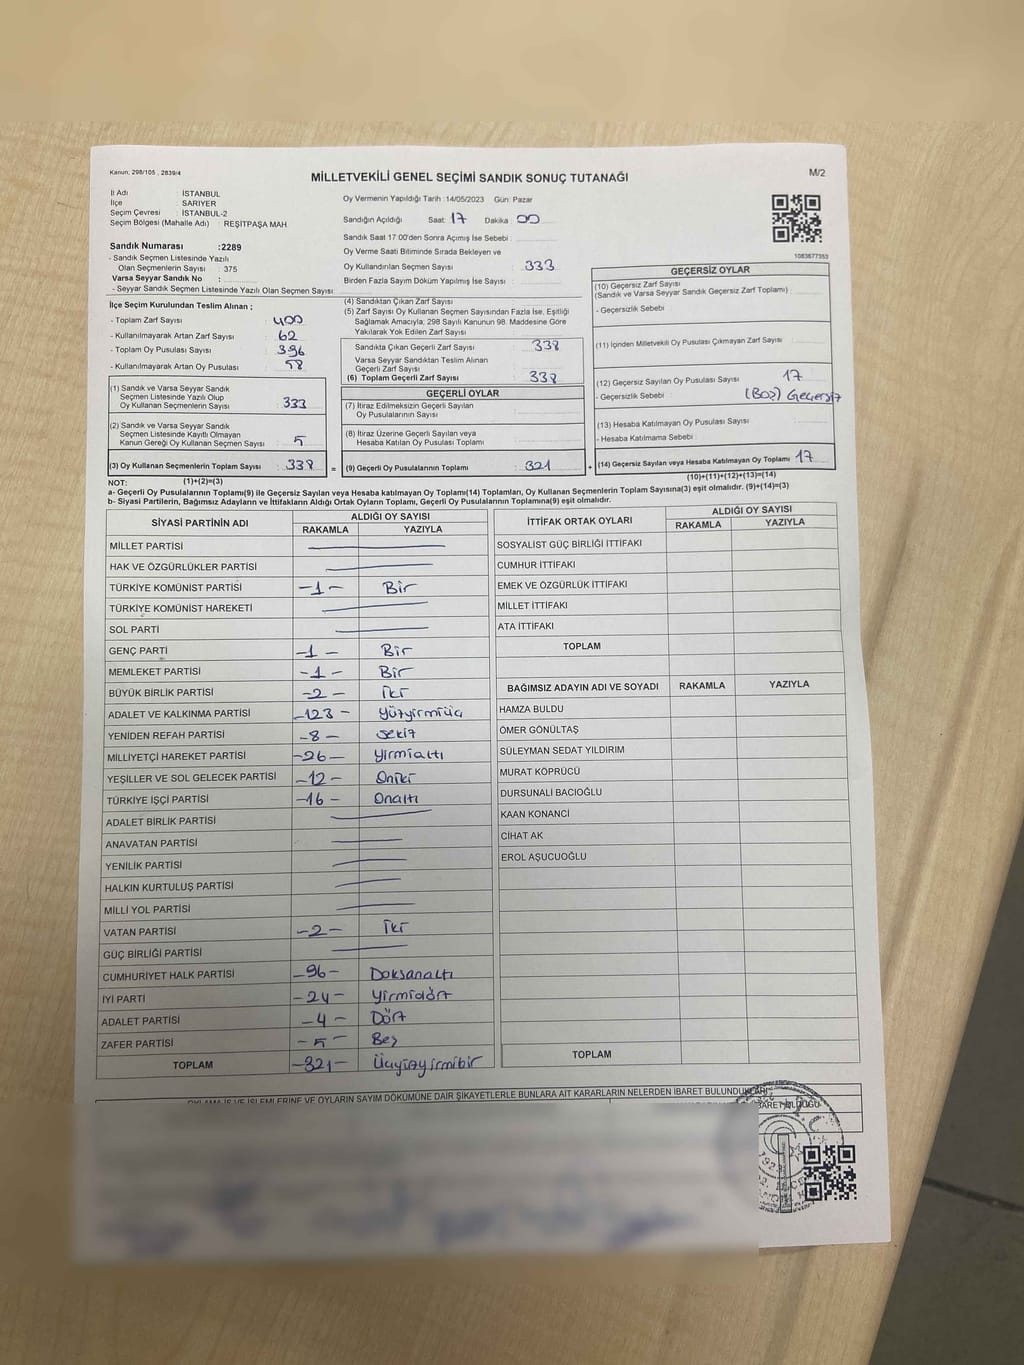 Kanun, 298/105 , 2839/4
MİLLETVEKİLİ GENEL SEÇİMİ SANDIK SONUÇ TUTANAĞI
M/2
İl Adı : İSTANBUL
İlçe : SARIYER
Seçim Çevresi : İSTANBUL-2
Seçim Bölgesi (Mahalle Adı) : REŞİTPAŞA MAH
Sandık Numarası :2289
- Sandık Seçmen Listesinde Yazılı
Olan Seçmenlerin Sayısı : 375
Varsa Seyyar Sandık No :
- Seyyar Sandık Seçmen Listesinde Yazılı Olan Seçmen Sayısı:
Oy Vermenin Yapıldığı Tarih :14/05/2023 Gün: Pazar
Sandığın Açıldığı Saat: 17 Dakika: 00
Sandık Saat 17:00'den Sonra Açımış İse Sebebi :
Oy Verme Saati Bitiminde Sırada Bekleyen ve
Oy Kullandırılan Seçmen Sayısı : 333
Birden Fazla Sayım Döküm Yapılmış İse Sayısı :
1083677353
İlçe Seçim Kurulundan Teslim Alınan ;
- Toplam Zarf Sayısı : 400
- Kullanılmayarak Artan Zarf Sayısı : 62
- Toplam Oy Pusulası Sayısı : 396
- Kullanılmayarak Artan Oy Pusulası : 58
(1) Sandık ve Varsa Seyyar Sandık
Seçmen Listesinde Yazılı Olup
Oy Kullanan Seçmenlerin Sayısı : 333
(2) Sandık ve Varsa Seyyar Sandık
Seçmen Listesinde Kayıtlı Olmayan
Kanun Gereği Oy Kullanan Seçmen Sayısı : 5
(3) Oy Kullanan Seçmenlerin Toplam Sayısı : 338 =
(4) Sandıktan Çıkan Zarf Sayısı
(5) Zarf Sayısı Oy Kullanan Seçmen Sayısından Fazla İse, Eşitliği
Sağlamak Amacıyla; 298 Sayılı Kanunun 98. Maddesine Göre
Yakılarak Yok Edilen Zarf Sayısı :
Sandıkta Çıkan Geçerli Zarf Sayısı : 338
Varsa Seyyar Sandıktan Teslim Alınan
Geçerli Zarf Sayısı :
(6) Toplam Geçerli Zarf Sayısı : 338
GEÇERLİ OYLAR
(7) İtiraz Edilmeksizin Geçerli Sayılan
Oy Pusulalarının Sayısı :
(8) İtiraz Üzerine Geçerli Sayılan veya
Hesaba Katılan Oy Pusulası Toplamı :
(9) Geçerli Oy Pusulalarının Toplamı : 321 +
GEÇERSİZ OYLAR
(10) Geçersiz Zarf Sayısı
(Sandık ve Varsa Seyyar Sandık Geçersiz Zarf Toplamı) :
- Geçersizlik Sebebi :
(11) İçinden Milletvekili Oy Pusulası Çıkmayan Zarf Sayısı :
(12) Geçersiz Sayılan Oy Pusulası Sayısı : 17
- Geçersizlik Sebebi : (Boş) Geçersiz
(13) Hesaba Katılmayan Oy Pusulası Sayısı :
- Hesaba Katılmama Sebebi :
(14) Geçersiz Sayılan veya Hesaba Katılmayan Oy Toplamı : 17
NOT: (1)+(2)=(3) (10)+(11)+(12)+(13)=(14)
a- Geçerli Oy Pusulalarının Toplamı(9) ile Geçersiz Sayılan veya Hesaba katılmayan Oy Toplamı(14) Toplamları, Oy Kullanan Seçmenlerin Toplam Sayısına(3) eşit olmalıdır. (9)+(14)=(3)
b- Siyasi Partilerin, Bağımsız Adayların ve İttifakların Aldığı Ortak Oyların Toplamı, Geçerli Oy Pusulalarının Toplamına(9) eşit olmalıdır.
SİYASİ PARTİNİN ADI ALDIĞI OY SAYISI
RAKAMLA YAZIYLA
MİLLET PARTİSİ
HAK VE ÖZGÜRLÜKLER PARTİSİ
TÜRKİYE KOMÜNİST PARTİSİ -1- Bir
TÜRKİYE KOMÜNİST HAREKETİ
SOL PARTİ
GENÇ PARTİ -1- Bir
MEMLEKET PARTİSİ -1- Bir
BÜYÜK BİRLİK PARTİSİ -2- İki
ADALET VE KALKINMA PARTİSİ -123- Yüzyirmiüç
YENİDEN REFAH PARTİSİ -8- Sekiz
MİLLİYETÇİ HAREKET PARTİSİ -26- Yirmialtı
YEŞİLLER VE SOL GELECEK PARTİSİ -12- Oniki
TÜRKİYE İŞÇİ PARTİSİ -16- Onaltı
ADALET BİRLİK PARTİSİ
ANAVATAN PARTİSİ
YENİLİK PARTİSİ
HALKIN KURTULUŞ PARTİSİ
MİLLİ YOL PARTİSİ
VATAN PARTİSİ -2- İki
GÜÇ BİRLİĞİ PARTİSİ
CUMHURİYET HALK PARTİSİ -96- Doksanaltı
İYİ PARTİ -24- Yirmidört
ADALET PARTİSİ -4- Dört
ZAFER PARTİSİ -5- Beş
TOPLAM -321- Üçyüzyirmibir
İTTİFAK ORTAK OYLARI ALDIĞI OY SAYISI
RAKAMLA YAZIYLA
SOSYALİST GÜÇ BİRLİĞİ İTTİFAKI
CUMHUR İTTİFAKI
EMEK VE ÖZGÜRLÜK İTTİFAKI
MİLLET İTTİFAKI
ATA İTTİFAKI
TOPLAM
BAĞIMSIZ ADAYIN ADI VE SOYADI RAKAMLA YAZIYLA
HAMZA BULDU
ÖMER GÖNÜLTAŞ
SÜLEYMAN SEDAT YILDIRIM
MURAT KÖPRÜCÜ
DURSUNALİ BACIOĞLU
KAAN KONANCİ
CİHAT AK
EROL AŞUCUOĞLU
TOPLAM
İŞLEMLERİNE VE OYLARIN SAYIM DÖKÜMÜNE DAİR ŞİKAYETLERLE BUNLARA AİT KARARLARIN NELERDEN İBARET BULUNDUKLARI